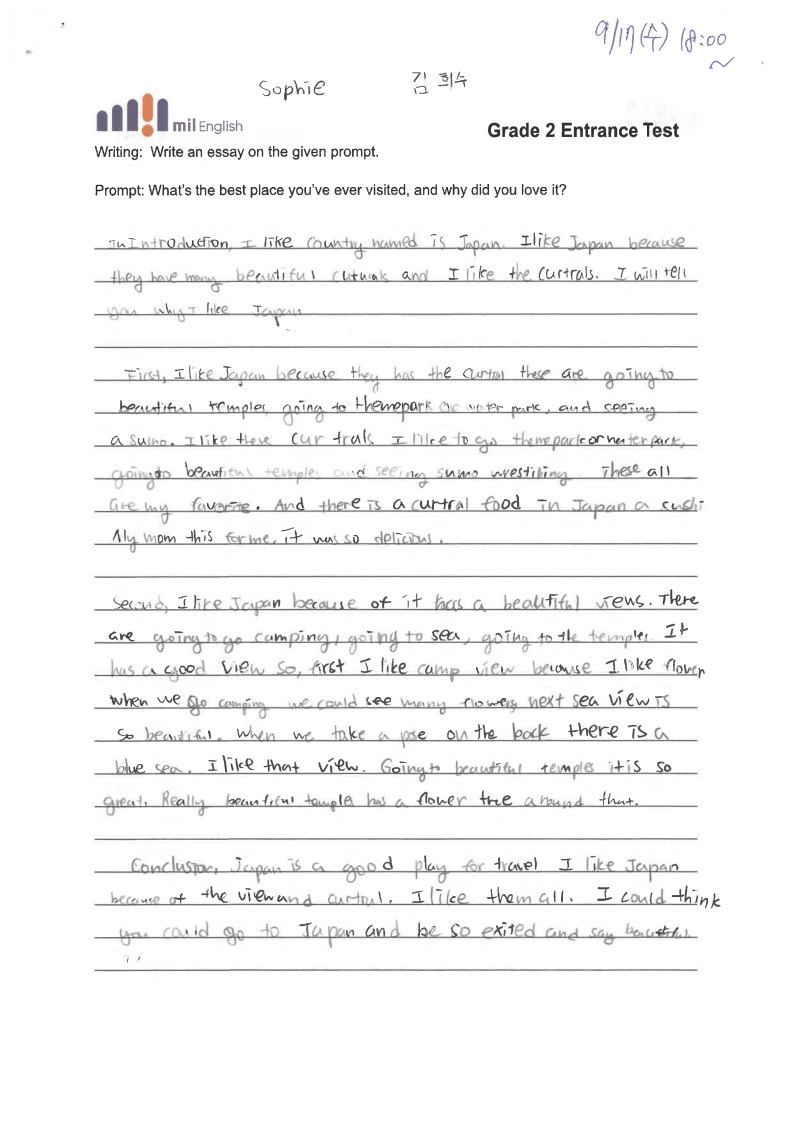 9/17(수) 18:00
Sophie 김희수
mil English
Grade 2 Entrance Test
Writing: Write an essay on the given prompt.
Prompt: What's the best place you've ever visited, and why did you love it?
In Introduction, I like country named is Japan. I like Japan because
they have many beautiful and I like the curtrals. I will tell
you why I like Japan
First, I like Japan because they has the curtral these are going to
beautiful temples, going to themepark or water park, and seeing
a sumo. I like these curtrals. I like to go themepark or water park,
going to beautiful temples and seeing sumo These all
are my favorite. And there is a curtral food in Japan a cushi
My mom this for me, it was so delicious.
Second, I like Japan because of it has a beautiful views. There
are going to go camping, going to sea, going to the temples. It
has a good view so, first I like camp view because I like flower
when we go camping we could see many flowers, next sea view is
so beautiful. When we take a pse on the back there is a
blue sea. I like that view. Going to beautiful temples it is so
great. Really beautiful temples has a flower tree around that.
Conclusion, Japan is a good play for travel I like Japan
because of the view and curtral. I like them all. I could think
you could go to Japan and be so exited and say